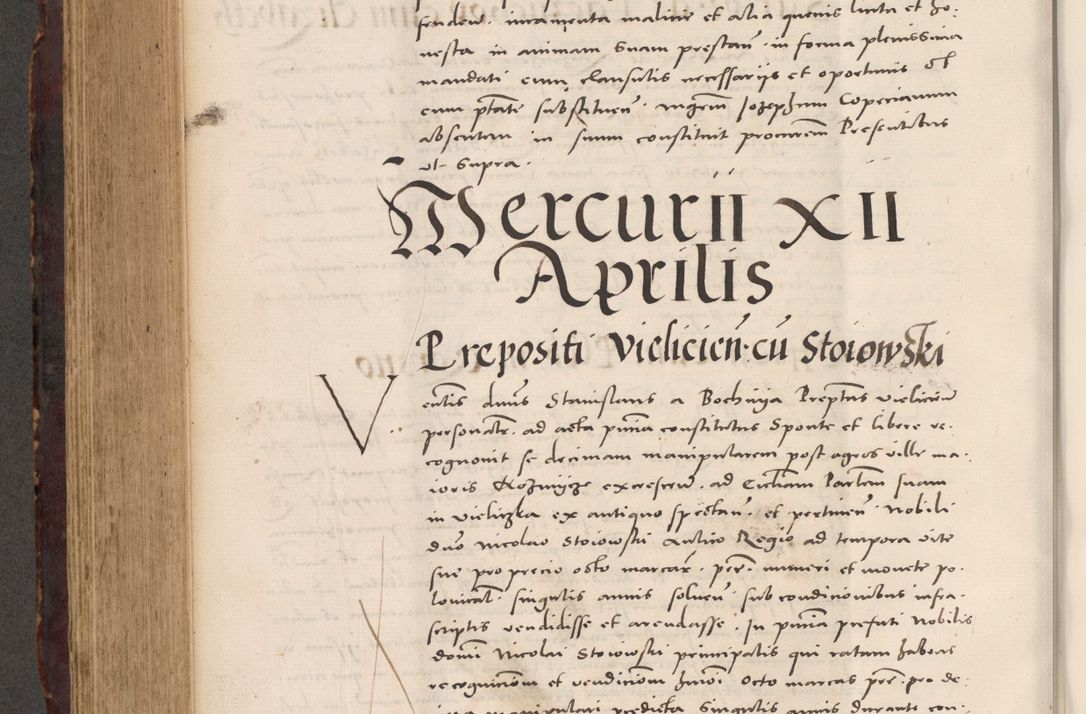 fendend. iuramenta malicie et alia quevis licita et ho-
nesta in animam suam prestand. in forma plenissima
mandati cum clausulis necessariis et oportunis Et
cum ptāte substituend. Magrm Josephum Copecianum
absentem in suum constituit procurem Presentibus
ut supra.
Mercurii XII
Aprilis
Prepositi Vielicien. cū Stoiowski
Venlis dnus Stanislaus a Bochnya Prepts vielicien
personalr. ad acta pnia constitutus Sponte et libere re-
cognovit se decimam manipularem post agros ville ma-
ioris Kozmycze excrescen. ad Eccliam Parlem suam
in Vieliczka ex antiquo spectan. et pertinen. Nobili
dno Nicolao Stoiowski Aulico Regio ad tempora vite
sue pro precio octo marcar. pecc. numeri et monete po-
lonical. singulis annis solven. sub condicionibus infra-
scriptis vendidisse et arendasse. In pnia prefati Nobilis
domi Nicolai Stoiowski principalis qui ratam habens
recognicionem et vendicionem hmoi Octo marcas pecc. pro de-
cima manipulari predicta Singulis annis durante con-